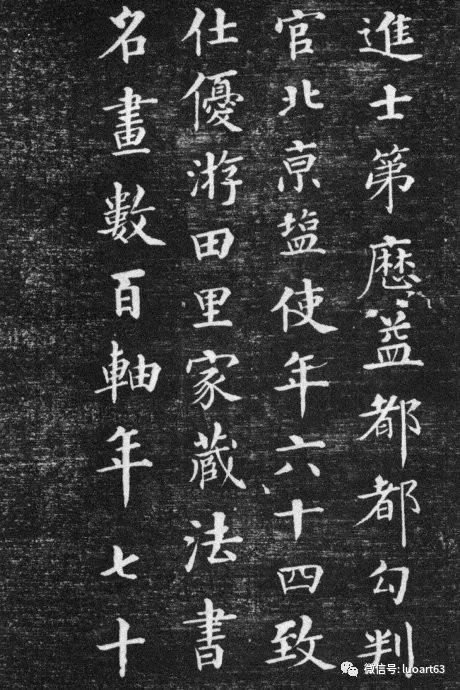 進士第歷益都都勾判
官北亰塩使年六十四致
仕優游田里家藏法書
名畫數百軸年七十
微信号: luoart63